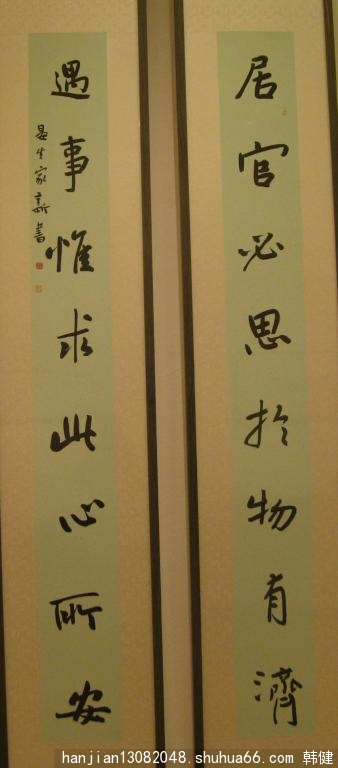 居官必思於物有濟
遇事惟求此心所安
晏生家新書
hanjian13082048.shuhua66.com 韩健